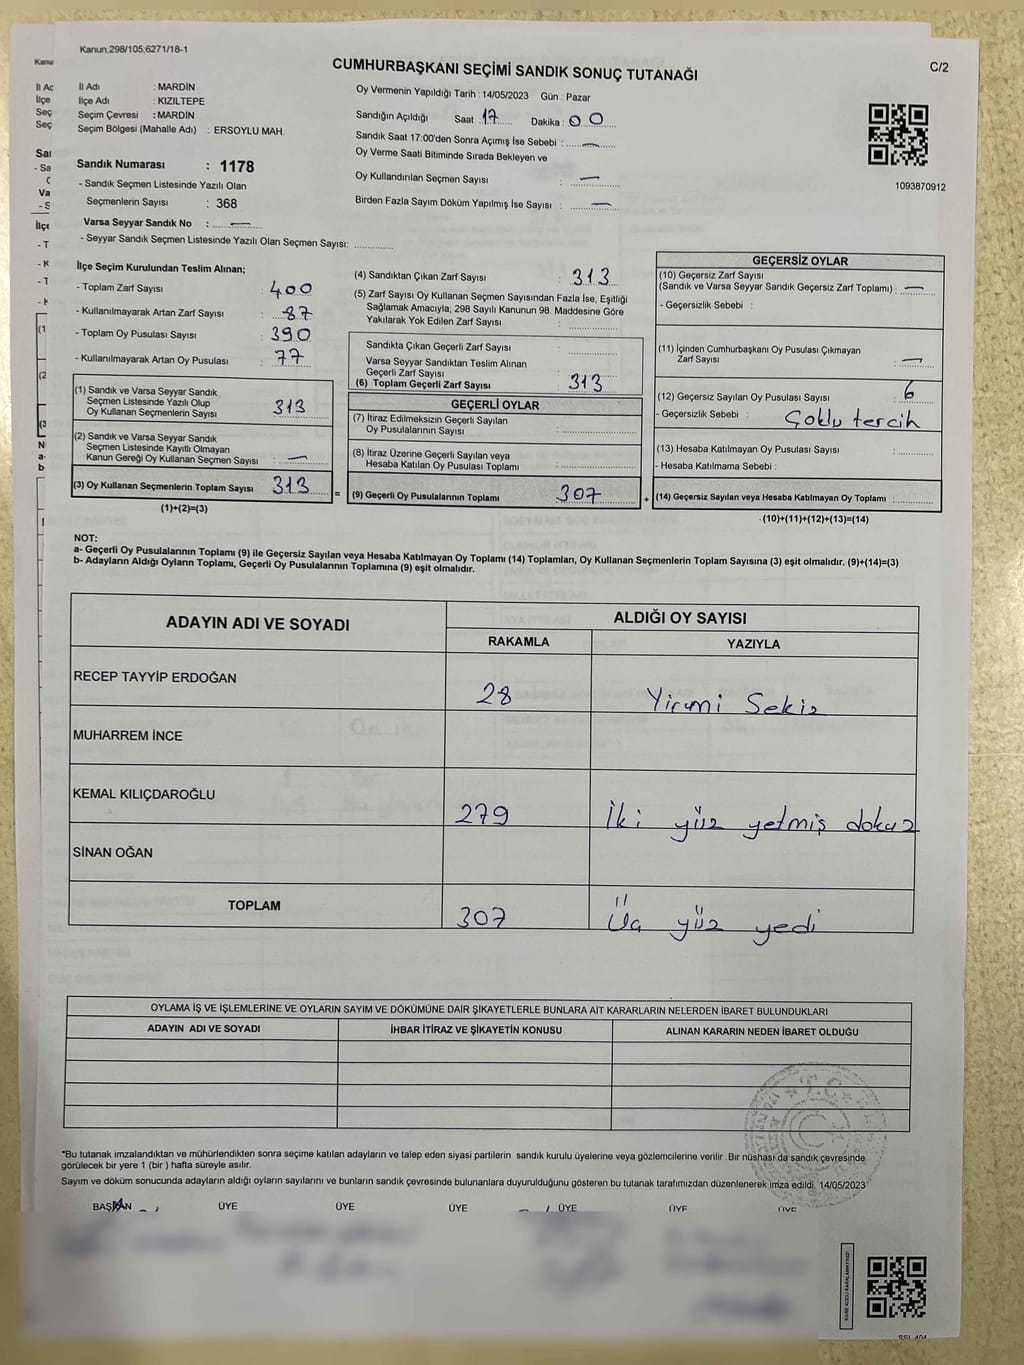 Kanun;298/105;6271/18-1
CUMHURBAŞKANI SEÇİMİ SANDIK SONUÇ TUTANAĞI
C/2
İl Adı : MARDİN
İlçe Adı : KIZILTEPE
Seçim Çevresi : MARDİN
Seçim Bölgesi (Mahalle Adı) : ERSOYLU MAH.
Sandık Numarası : 1178
- Sandık Seçmen Listesinde Yazılı Olan
Seçmenlerin Sayısı : 368
Varsa Seyyar Sandık No : —
- Seyyar Sandık Seçmen Listesinde Yazılı Olan Seçmen Sayısı:
Oy Vermenin Yapıldığı Tarih : 14/05/2023 Gün : Pazar
Sandığın Açıldığı Saat 17 Dakika : 00
Sandık Saat 17:00'den Sonra Açımış İse Sebebi : —
Oy Verme Saati Bitiminde Sırada Bekleyen ve
Oy Kullandırılan Seçmen Sayısı : —
Birden Fazla Sayım Döküm Yapılmış İse Sayısı : —
1093870912
İlçe Seçim Kurulundan Teslim Alınan;
- Toplam Zarf Sayısı : 400
- Kullanılmayarak Artan Zarf Sayısı : 87
- Toplam Oy Pusulası Sayısı : 390
- Kullanılmayarak Artan Oy Pusulası : 77
(1) Sandık ve Varsa Seyyar Sandık
Seçmen Listesinde Yazılı Olup
Oy Kullanan Seçmenlerin Sayısı : 313
(2) Sandık ve Varsa Seyyar Sandık
Seçmen Listesinde Kayıtlı Olmayan
Kanun Gereği Oy Kullanan Seçmen Sayısı : —
(3) Oy Kullanan Seçmenlerin Toplam Sayısı 313
(1)+(2)=(3)
(4) Sandıktan Çıkan Zarf Sayısı : 313
(5) Zarf Sayısı Oy Kullanan Seçmen Sayısından Fazla İse, Eşitliği
Sağlamak Amacıyla; 298 Sayılı Kanunun 98. Maddesine Göre
Yakılarak Yok Edilen Zarf Sayısı :
Sandıkta Çıkan Geçerli Zarf Sayısı :
Varsa Seyyar Sandıktan Teslim Alınan
Geçerli Zarf Sayısı :
(6) Toplam Geçerli Zarf Sayısı 313
GEÇERLİ OYLAR
(7) İtiraz Edilmeksizin Geçerli Sayılan
Oy Pusulalarının Sayısı :
(8) İtiraz Üzerine Geçerli Sayılan veya
Hesaba Katılan Oy Pusulası Toplamı :
= (9) Geçerli Oy Pusulalarının Toplamı 307
GEÇERSİZ OYLAR
(10) Geçersiz Zarf Sayısı
(Sandık ve Varsa Seyyar Sandık Geçersiz Zarf Toplamı) : —
- Geçersizlik Sebebi :
(11) İçinden Cumhurbaşkanı Oy Pusulası Çıkmayan
Zarf Sayısı : —
(12) Geçersiz Sayılan Oy Pusulası Sayısı : 6
- Geçersizlik Sebebi : Çoklu tercih
(13) Hesaba Katılmayan Oy Pusulası Sayısı :
- Hesaba Katılmama Sebebi :
+ (14) Geçersiz Sayılan veya Hesaba Katılmayan Oy Toplamı :
(10)+(11)+(12)+(13)=(14)
NOT:
a- Geçerli Oy Pusulalarının Toplamı (9) ile Geçersiz Sayılan veya Hesaba Katılmayan Oy Toplamı (14) Toplamları, Oy Kullanan Seçmenlerin Toplam Sayısına (3) eşit olmalıdır. (9)+(14)=(3)
b- Adayların Aldığı Oyların Toplamı, Geçerli Oy Pusulalarının Toplamına (9) eşit olmalıdır.
ADAYIN ADI VE SOYADI
ALDIĞI OY SAYISI
RAKAMLA YAZIYLA
RECEP TAYYİP ERDOĞAN 28 Yirmi Sekiz
MUHARREM İNCE
KEMAL KILIÇDAROĞLU 279 İki yüz yetmiş dokuz
SİNAN OĞAN
TOPLAM 307 Üç yüz yedi
OYLAMA İŞ VE İŞLEMLERİNE VE OYLARIN SAYIM VE DÖKÜMÜNE DAİR ŞİKAYETLERLE BUNLARA AİT KARARLARIN NELERDEN İBARET BULUNDUKLARI
ADAYIN ADI VE SOYADI İHBAR İTİRAZ VE ŞİKAYETİN KONUSU ALINAN KARARIN NEDEN İBARET OLDUĞU
*Bu tutanak imzalandıktan ve mühürlendikten sonra seçime katılan adayların ve talep eden siyasi partilerin sandık kurulu üyelerine veya gözlemcilerine verilir .Bir nüshası da sandık çevresinde
görülecek bir yere 1 (bir ) hafta süreyle asılır.
Sayım ve döküm sonucunda adayların aldığı oyların sayılarını ve bunların sandık çevresinde bulunanlara duyurulduğunu gösteren bu tutanak tarafımızdan düzenlenerek imza edildi. 14/05/2023
BAŞKAN ÜYE ÜYE ÜYE ÜYE ÜYE ÜYE
KARE KODU KARALAMAYINIZ!